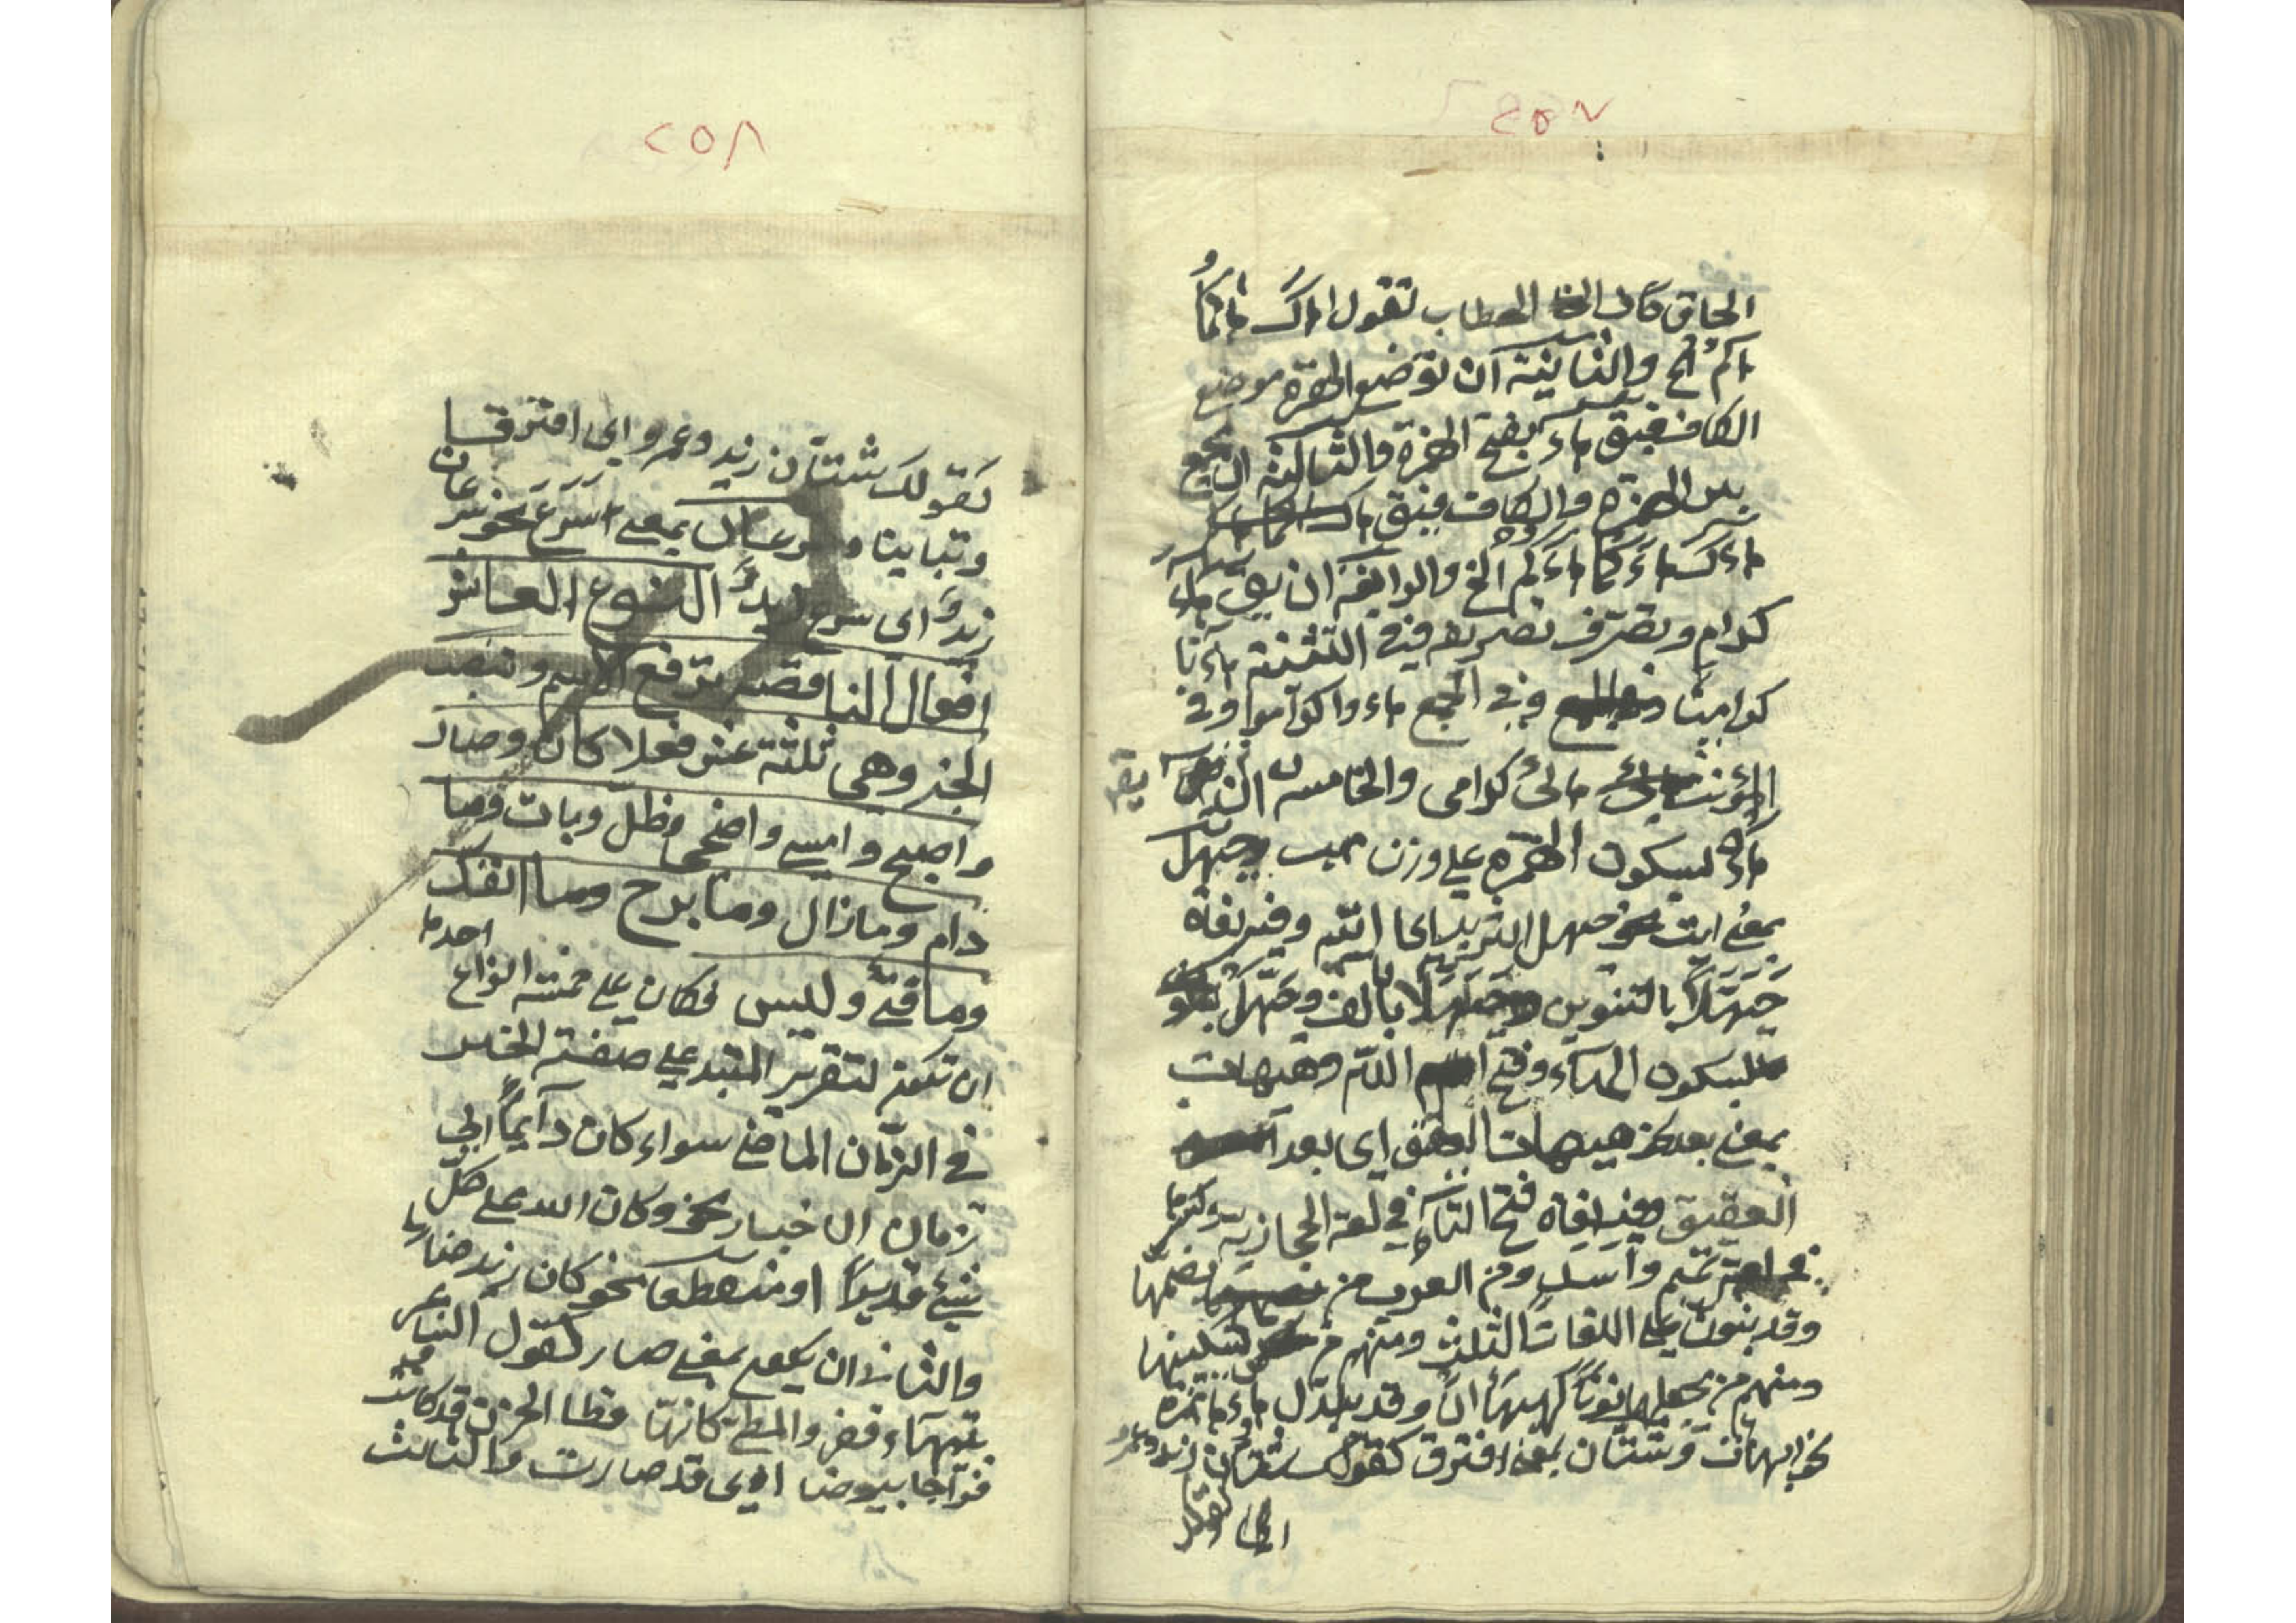 ٢٥٧
الحاق كاف الخطاب تقول هاك هاكما
هاكم الخ والثانية ان توضع الهمزة موضع
الكاف فيق هاء بفتح الهمزة والثالثة ان يجمع
بين الهمزة والكاف فيق هاءك
هاءك هاءكما هاءكم الخ والرابعة ان يق هاء
كرام وتصرف تصريفه في التثنية هائيا
كراميا وفي الجمع هاءوا كراموا وفي
المؤنث هائى كرامى والخامسة ان يق
هاء بسكون الهمزة على وزن هب وحيهل
بمعنى ايت نحو حيهل الثريد اى ايته وفيه لغاة
حيهلا بالتنوين وحيهلا بالف وحيهل
بسكون الهاء وفتح اللام وهيهات
بمعنى بعد نحو هيهات العقيق اى بعد
العقيق وفيه لغاة فتح التاء في لغة الحجازية وكسرها
في تميم واسد ومن العرب من يضمها
وقد ينون على اللغات الثلث ومنهم من يسكنها
ومنهم من يجعلها نونا كهيهان وقد يبدل هاءها همزة
نحو ايهات وشتان بمعنى افترق كقولك شتان زيد وعمرو
اى افترقا
٢٥٨
كقولك شتان زيد وعمرو اى افترقا
وتباينا وسرعان بمعنى اسرع نحو سرعان
زيد اى سرع زيد النوع العاشر
افعال الناقصه ترفع الاسم وتنصب
الخبر وهى ثلثة عشر فعلا كان وصار
واصبح وامسى واضحى وظل وبات وما
دام ومازال ومابرح وما انفك
وما فتئ وليس فكان على خمسة انواع احدها
ان تكون لتقرير المبتدا على صفة الخبر
في الزمان الماضى سواء كان دائما الى
زمان الاخبار نحو وكان الله على كل
شيء قديرا او منقطعا نحو كان زيد ضاربا
والثانى ان يكون بمعنى صار كقول الشاعر
بتيهاء قفر والمطى كانها قطا الحزن قد كانت
فراخا بيوضا اى قد صارت والثالث